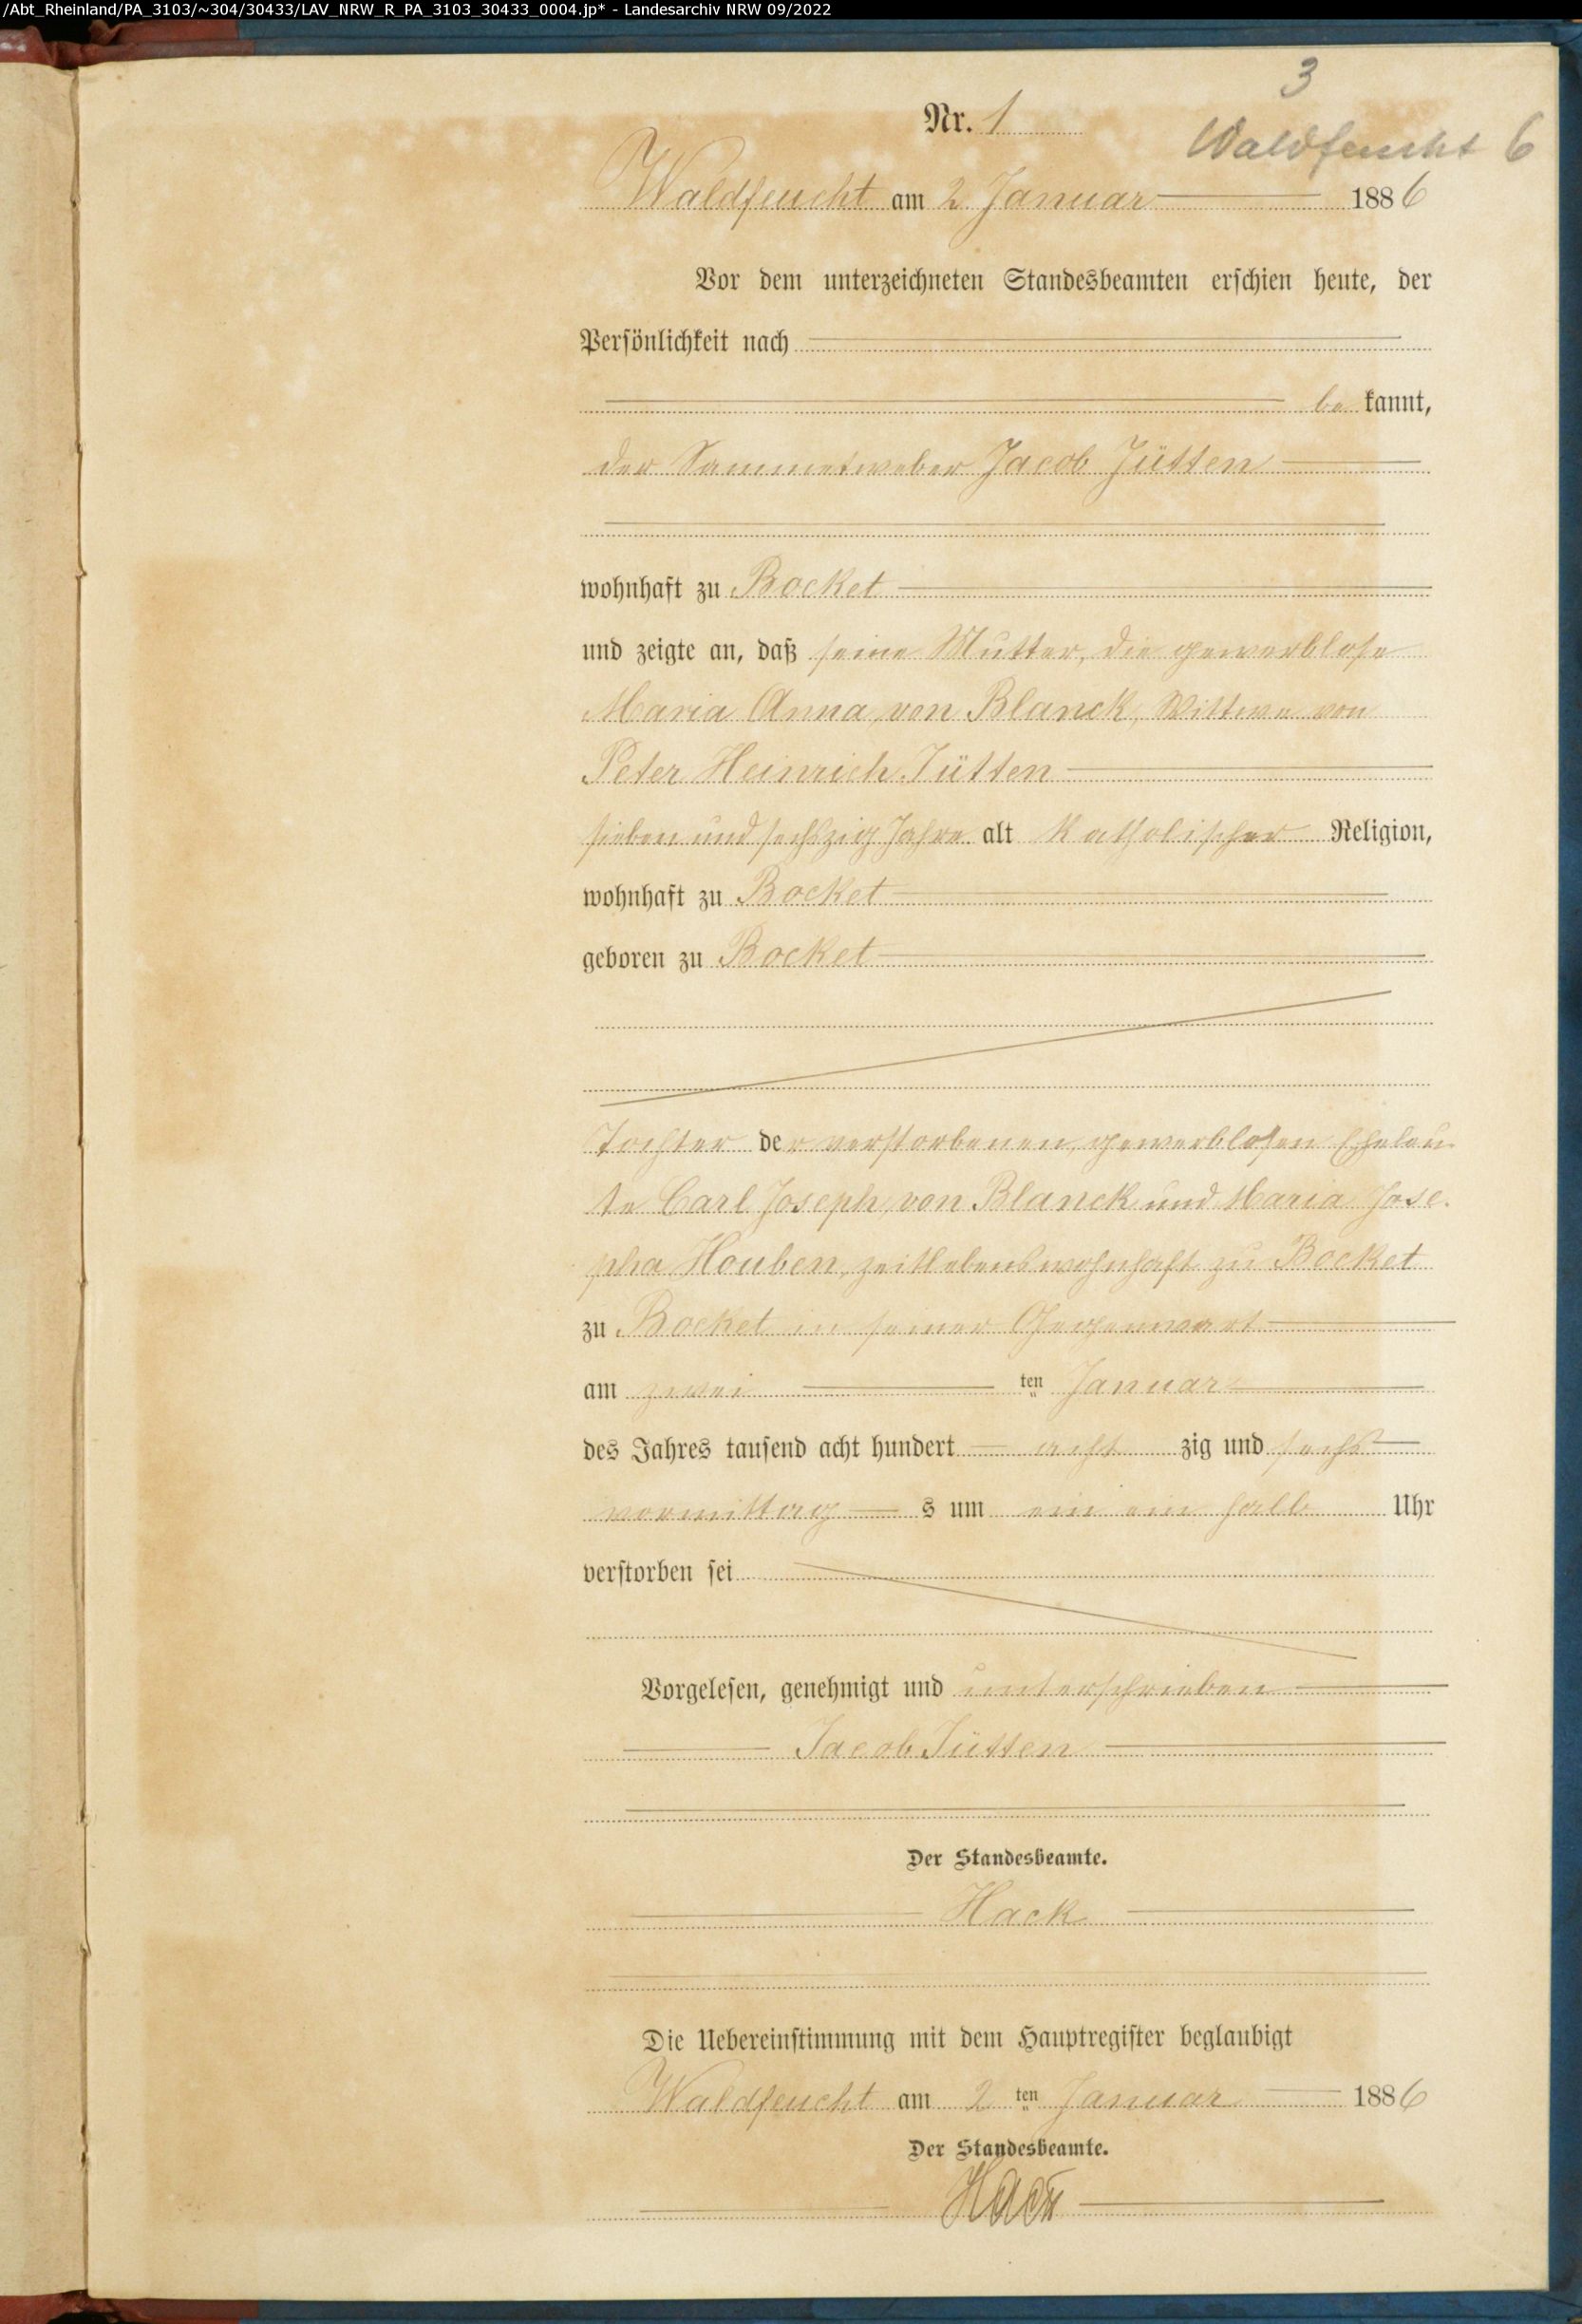 /Abt_Rheinland/PA_3103/~304/30433/LAV_NRW_R_PA_3103_30433_0004.jp* - Landesarchiv NRW 09/2022
3
Nr. 1
Waldfeucht 6
Waldfeucht am 2 Januar 1886
Vor dem unterzeichneten Standesbeamten erschien heute, der
Persönlichkeit nach
be kannt,
der Sammetweber Jacob Jütten
wohnhaft zu Bocket
und zeigte an, daß seine Mutter, die gewerblose
Maria Anna von Blanck, Wittwe von
Peter Heinrich Jütten
sieben und sechszig Jahre alt katholischer Religion,
wohnhaft zu Bocket
geboren zu Bocket
Tochter der verstorbenen, gewerblosen Eheleu-
te Carl Joseph von Blanck und Maria Jose-
pha Houben, zeitlebens wohnhaft zu Bocket
zu Bocket in seiner Gegenwart
am zwei ten Januar
des Jahres tausend acht hundert acht zig und sechs
vormittag s um ein ein halb Uhr
verstorben sei
Vorgelesen, genehmigt und unterschrieben
Jacob Jütten
Der Standesbeamte.
Hack
Die Uebereinstimmung mit dem Hauptregister beglaubigt
Waldfeucht am 2 ten Januar 1886
Der Standesbeamte.
Hack